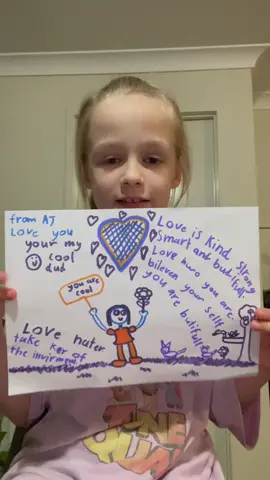 from AJ
Love you
your my
cool
dud
you are
cool
Love is kind strong
smart and budifull.
Love huro you are.
bileven your self
you are butifull
Love nater
take ker of
the invirment